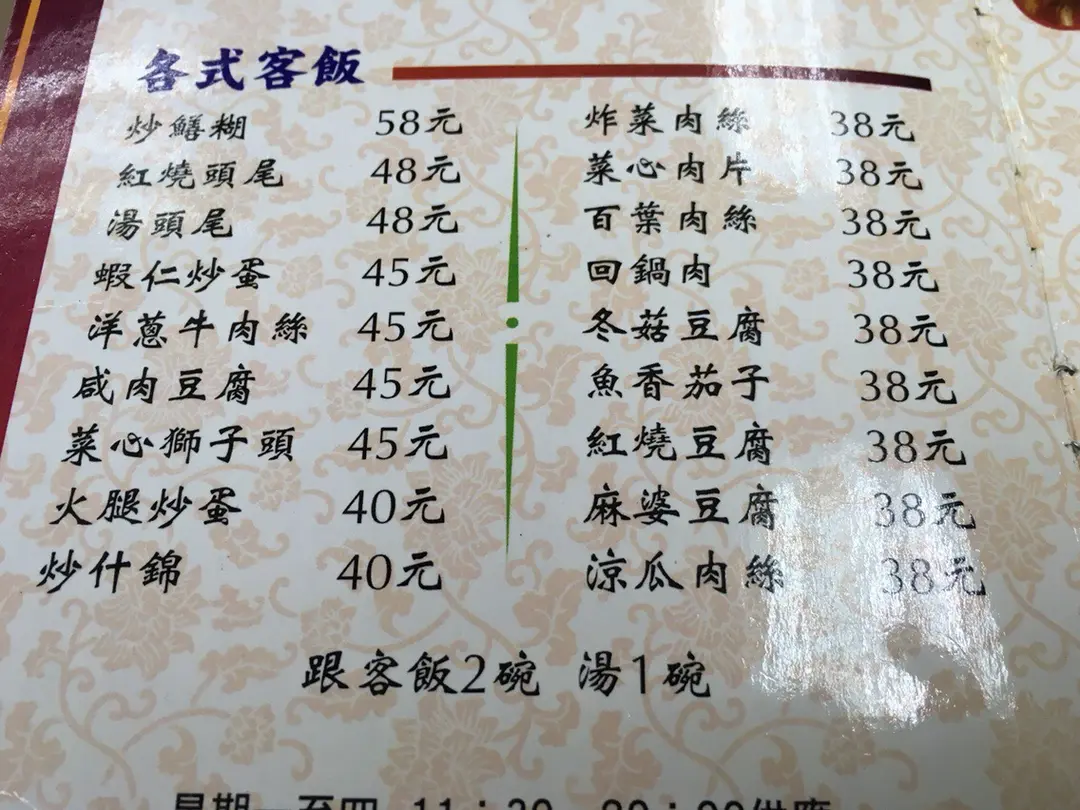 各式客飯
炒鱔糊 58元
紅燒頭尾 48元
湯頭尾 48元
蝦仁炒蛋 45元
洋蔥牛肉絲 45元
咸肉豆腐 45元
菜心獅子頭 45元
火腿炒蛋 40元
炒什錦 40元
炸菜肉絲 38元
菜心肉片 38元
百葉肉絲 38元
回鍋肉 38元
冬菇豆腐 38元
魚香茄子 38元
紅燒豆腐 38元
麻婆豆腐 38元
涼瓜肉絲 38元
跟客飯2碗 湯1碗
星期一至四 11:30